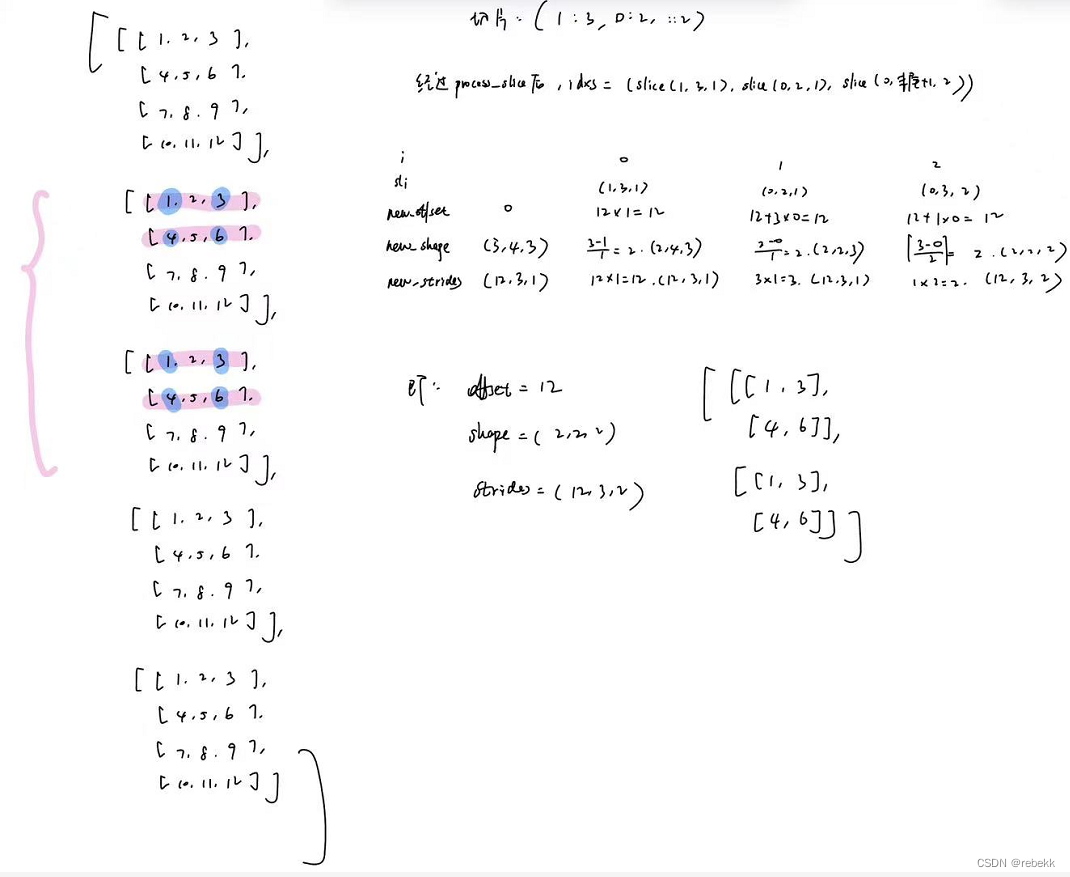 [ [ [ 1. 2, 3 ],
[ 4, 5, 6 ].
[ 7, 8. 9 ],
[ 10, 11, 12 ] ],
[ [ 1. 2, 3 ],
[ 4, 5, 6 ].
[ 7, 8. 9 ],
[ 10, 11, 12 ] ],
[ [ 1. 2, 3 ],
[ 4, 5, 6 ].
[ 7, 8. 9 ],
[ 10, 11, 12 ] ],
[ [ 1. 2, 3 ],
[ 4, 5, 6 ].
[ 7, 8. 9 ],
[ 10, 11, 12 ] ],
[ [ 1. 2, 3 ],
[ 4, 5, 6 ].
[ 7, 8. 9 ],
[ 10, 11, 12 ] ]
]
切片: ( 1:3, 0:2, ::2)
经过 process_slice 后, idxs = (slice(1, 3, 1), slice(0, 2, 1), slice(0, +1, 2))
i 0 1 2
sli (1,3,1) (0,2,1) (0,3,2)
new_offset 0 12×1=12 12+3×0=12 12+1×0= 12
new_shape (3,4,3) 3-1/1=2. (2,4,3) 2-0/1=2. (2,2,3) ⌈3-0/2⌉= 2. (2,2,2)
new_strides (12,3,1) 12×1=12. (12,3,1) 3×1=3. (12,3,1) 1×2=2. (12,3,2)
即: offset = 12
shape = ( 2,2,2 )
strides = ( 12,3,2 )
[ [[1, 3],
[4, 6]],
[[1, 3],
[4, 6]] ]
CSDN @rebekk